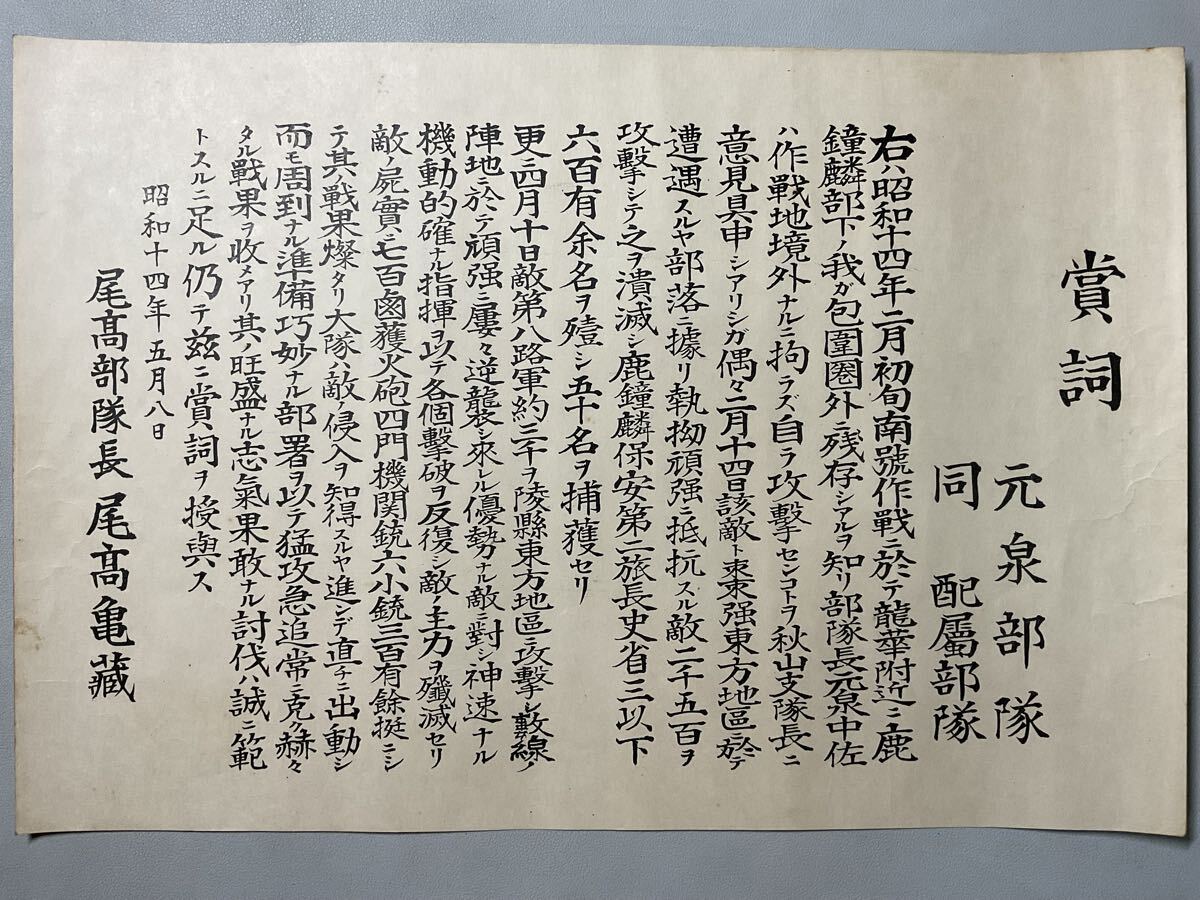 賞詞
元泉部隊
同 配屬部隊
右ハ昭和十四年二月初旬南號作戰ニ於テ龍華附近ニ鹿
鐘麟部下ノ我ガ包圍圏外ニ残存シアルヲ知リ部隊長元泉中佐
ハ作戰地境外ナルニ拘ラズ自ラ攻擊センコトヲ秋山支隊長ニ
意見具申シアリシガ偶々二月十四日該敵ト棗强東方地區ニ於テ
遭遇スルヤ部落ニ據リ執拗頑强ニ抵抗スル敵二千五百ヲ
攻擊シテ之ヲ潰滅シ鹿鐘麟保安第二旅長史省三以下
六百有余名ヲ殪シ五十名ヲ捕獲セリ
更ニ四月十日敵第八路軍約三千ヲ陵縣東方地區ニ攻擊シ數線ノ
陣地ニ於テ頑强ニ屢々逆襲シ來レル優勢ナル敵ニ對シ神速ナル
機動的確ナル指揮ヲ以テ各個擊破ヲ反復シ敵ノ主力ヲ殲滅セリ
敵ノ屍實ニ七百鹵獲火砲四門機関銃六小銃三百有餘挺ニシ
テ其ノ戰果燦タリ大隊ハ敵ノ侵入ヲ知得スルヤ進ンデ直チニ出動シ
而モ周到ナル準備巧妙ナル部署ヲ以テ猛攻急追常ニ克ク赫々
タル戰果ヲ收メアリ其ノ旺盛ナル志氣果敢ナル討伐ハ誠ニ範
トスルニ足ル仍テ茲ニ賞詞ヲ授與ス
昭和十四年五月八日
尾髙部隊長 尾髙亀藏